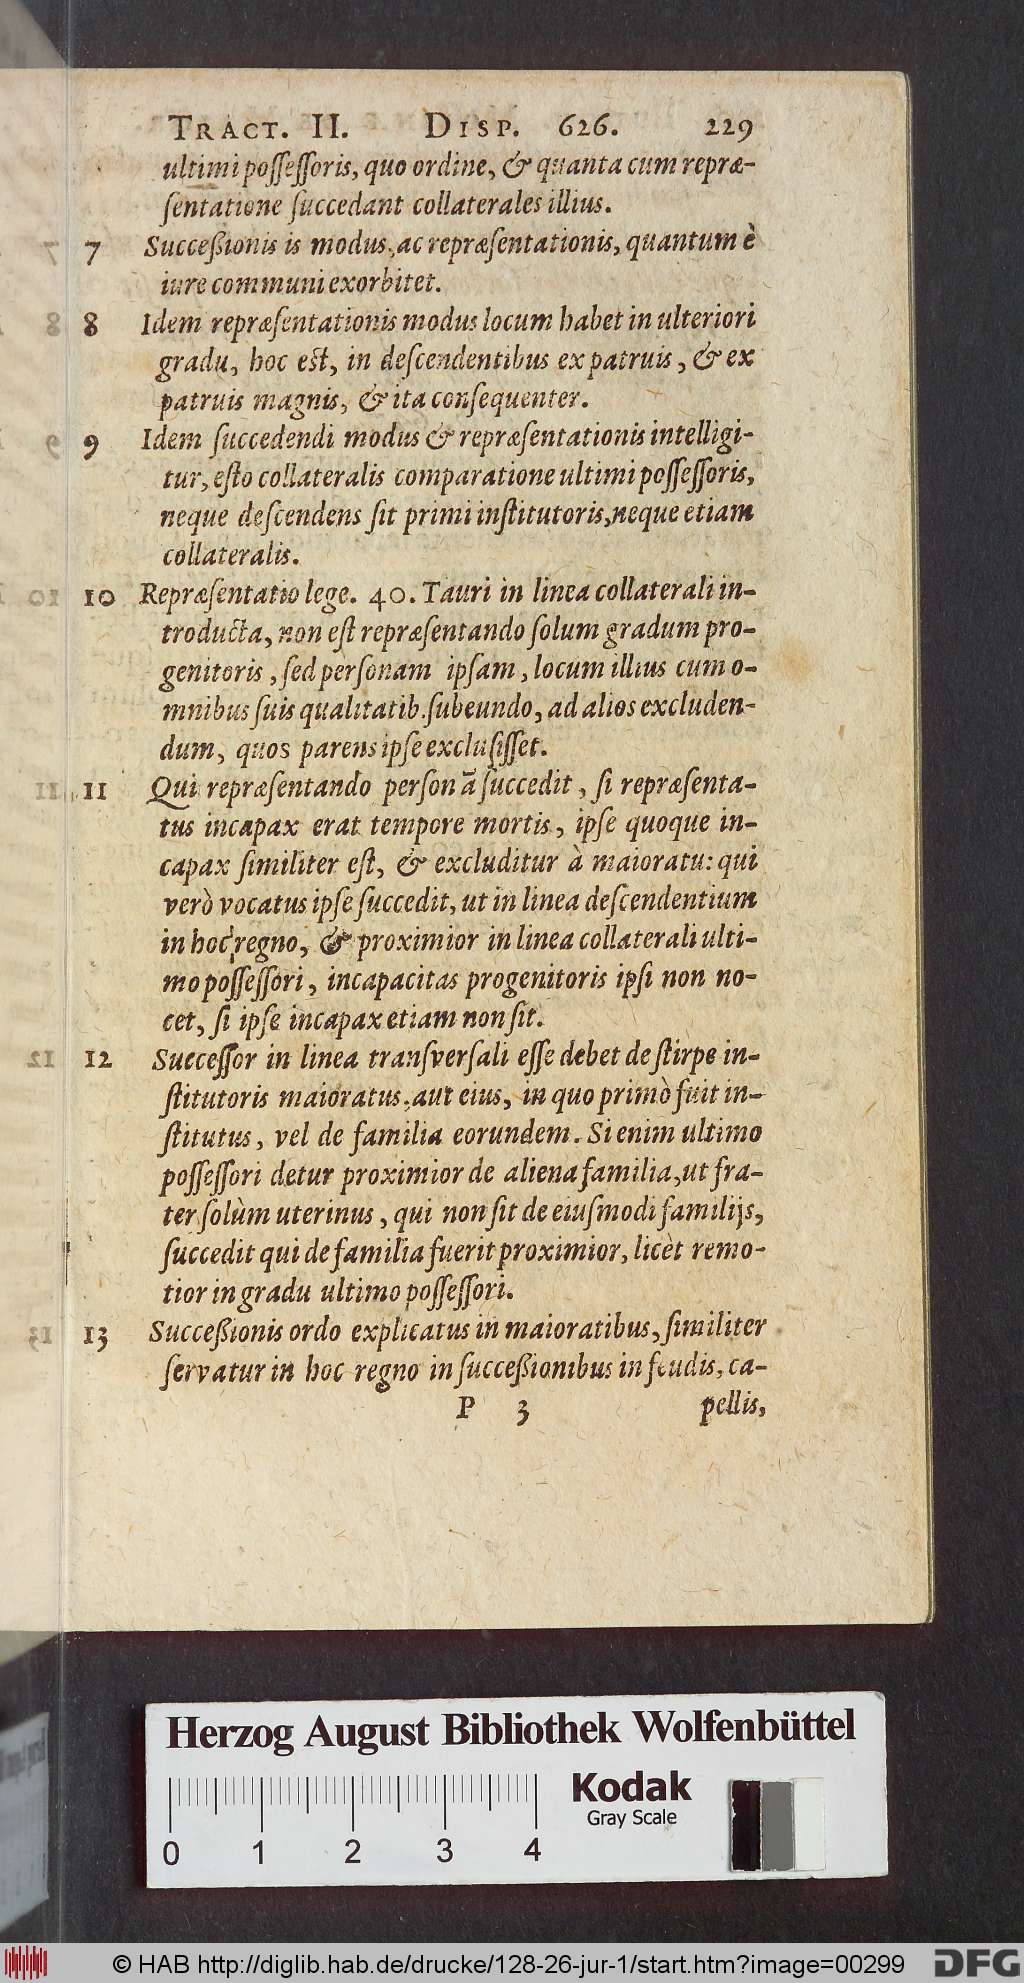 TRACT. II. DISP. 626. 229
ultimi poſſeſſoris, quo ordine, & quanta cum repræ-
ſentatione ſuccedant collaterales illius.
7 Succeßionis is modus, ac repræſentationis, quantum è
iure communi exorbitet.
8 Idem repræſentationis modus locum habet in ulteriori
gradu, hoc est, in deſcendentibus ex patruis, & ex
patruis magnis, & ita conſequenter.
9 Idem ſuccedendi modus & repræſentationis intelligi-
tur, eſto collateralis comparatione ultimi poſſeſſoris,
neque deſcendens ſit primi inſtitutoris, neque etiam
collateralis.
10 Repræſentatio lege. 40. Tauri in linea collaterali in-
troducta, non eſt repræſentando ſolum gradum pro-
genitoris, ſed perſonam ipſam, locum illius cum o-
mnibus ſuis qualitatib. ſubeundo, ad alios excluden-
dum, quos parens ipſe excluſiſſet.
11 Qui repræſentando perſonā ſuccedit, ſi repræſenta-
tus incapax erat tempore mortis, ipſe quoque in-
capax ſimiliter eſt, & excluditur à maioratu: qui
verò vocatus ipſe ſuccedit, ut in linea deſcendentium
in hoc regno, & proximior in linea collaterali ulti-
mo poſſeſſori, incapacitas progenitoris ipſi non no-
cet, ſi ipſe incapax etiam non ſit.
12 Succeſſor in linea tranſverſali eſſe debet de ſtirpe in-
ſtitutoris maioratus, aut eius, in quo primò fuit in-
ſtitutus, vel de familia eorundem. Si enim ultimo
poſſeſſori detur proximior de aliena familia, ut fra-
ter ſolùm uterinus, qui non ſit de eiuſmodi familijs,
ſuccedit qui de familia fuerit proximior, licèt remo-
tior in gradu ultimo poſſeſſori.
13 Succeßionis ordo explicatus in maioratibus, ſimiliter
ſervatur in hoc regno in ſucceßionibus in feudis, ca-
P 3 pellis,
Herzog August Bibliothek Wolfenbüttel
Kodak
Gray Scale
0 1 2 3 4
© HAB http://diglib.hab.de/drucke/128-26-jur-1/start.htm?image=00299
DFG